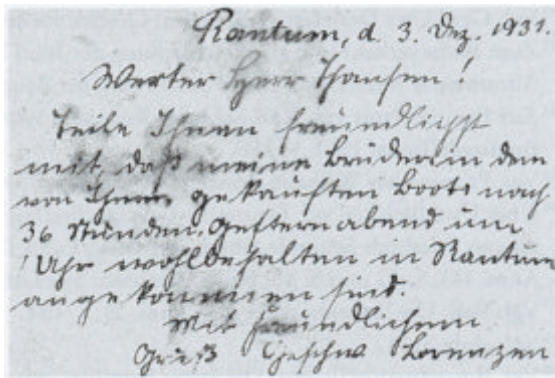 Rantum, d. 3. Dez. 1931.
Werter Herr Thaysen!
Teile Ihnen freundlichst
mit, daß meine Brüder in dem
von Ihnen gekauften Boote nach
36 Stunden, gestern abend um
Uhr wohlbehalten in Rantum
angekommen sind.
Mit freundlichem
Gruß Geschw. Lorenzen